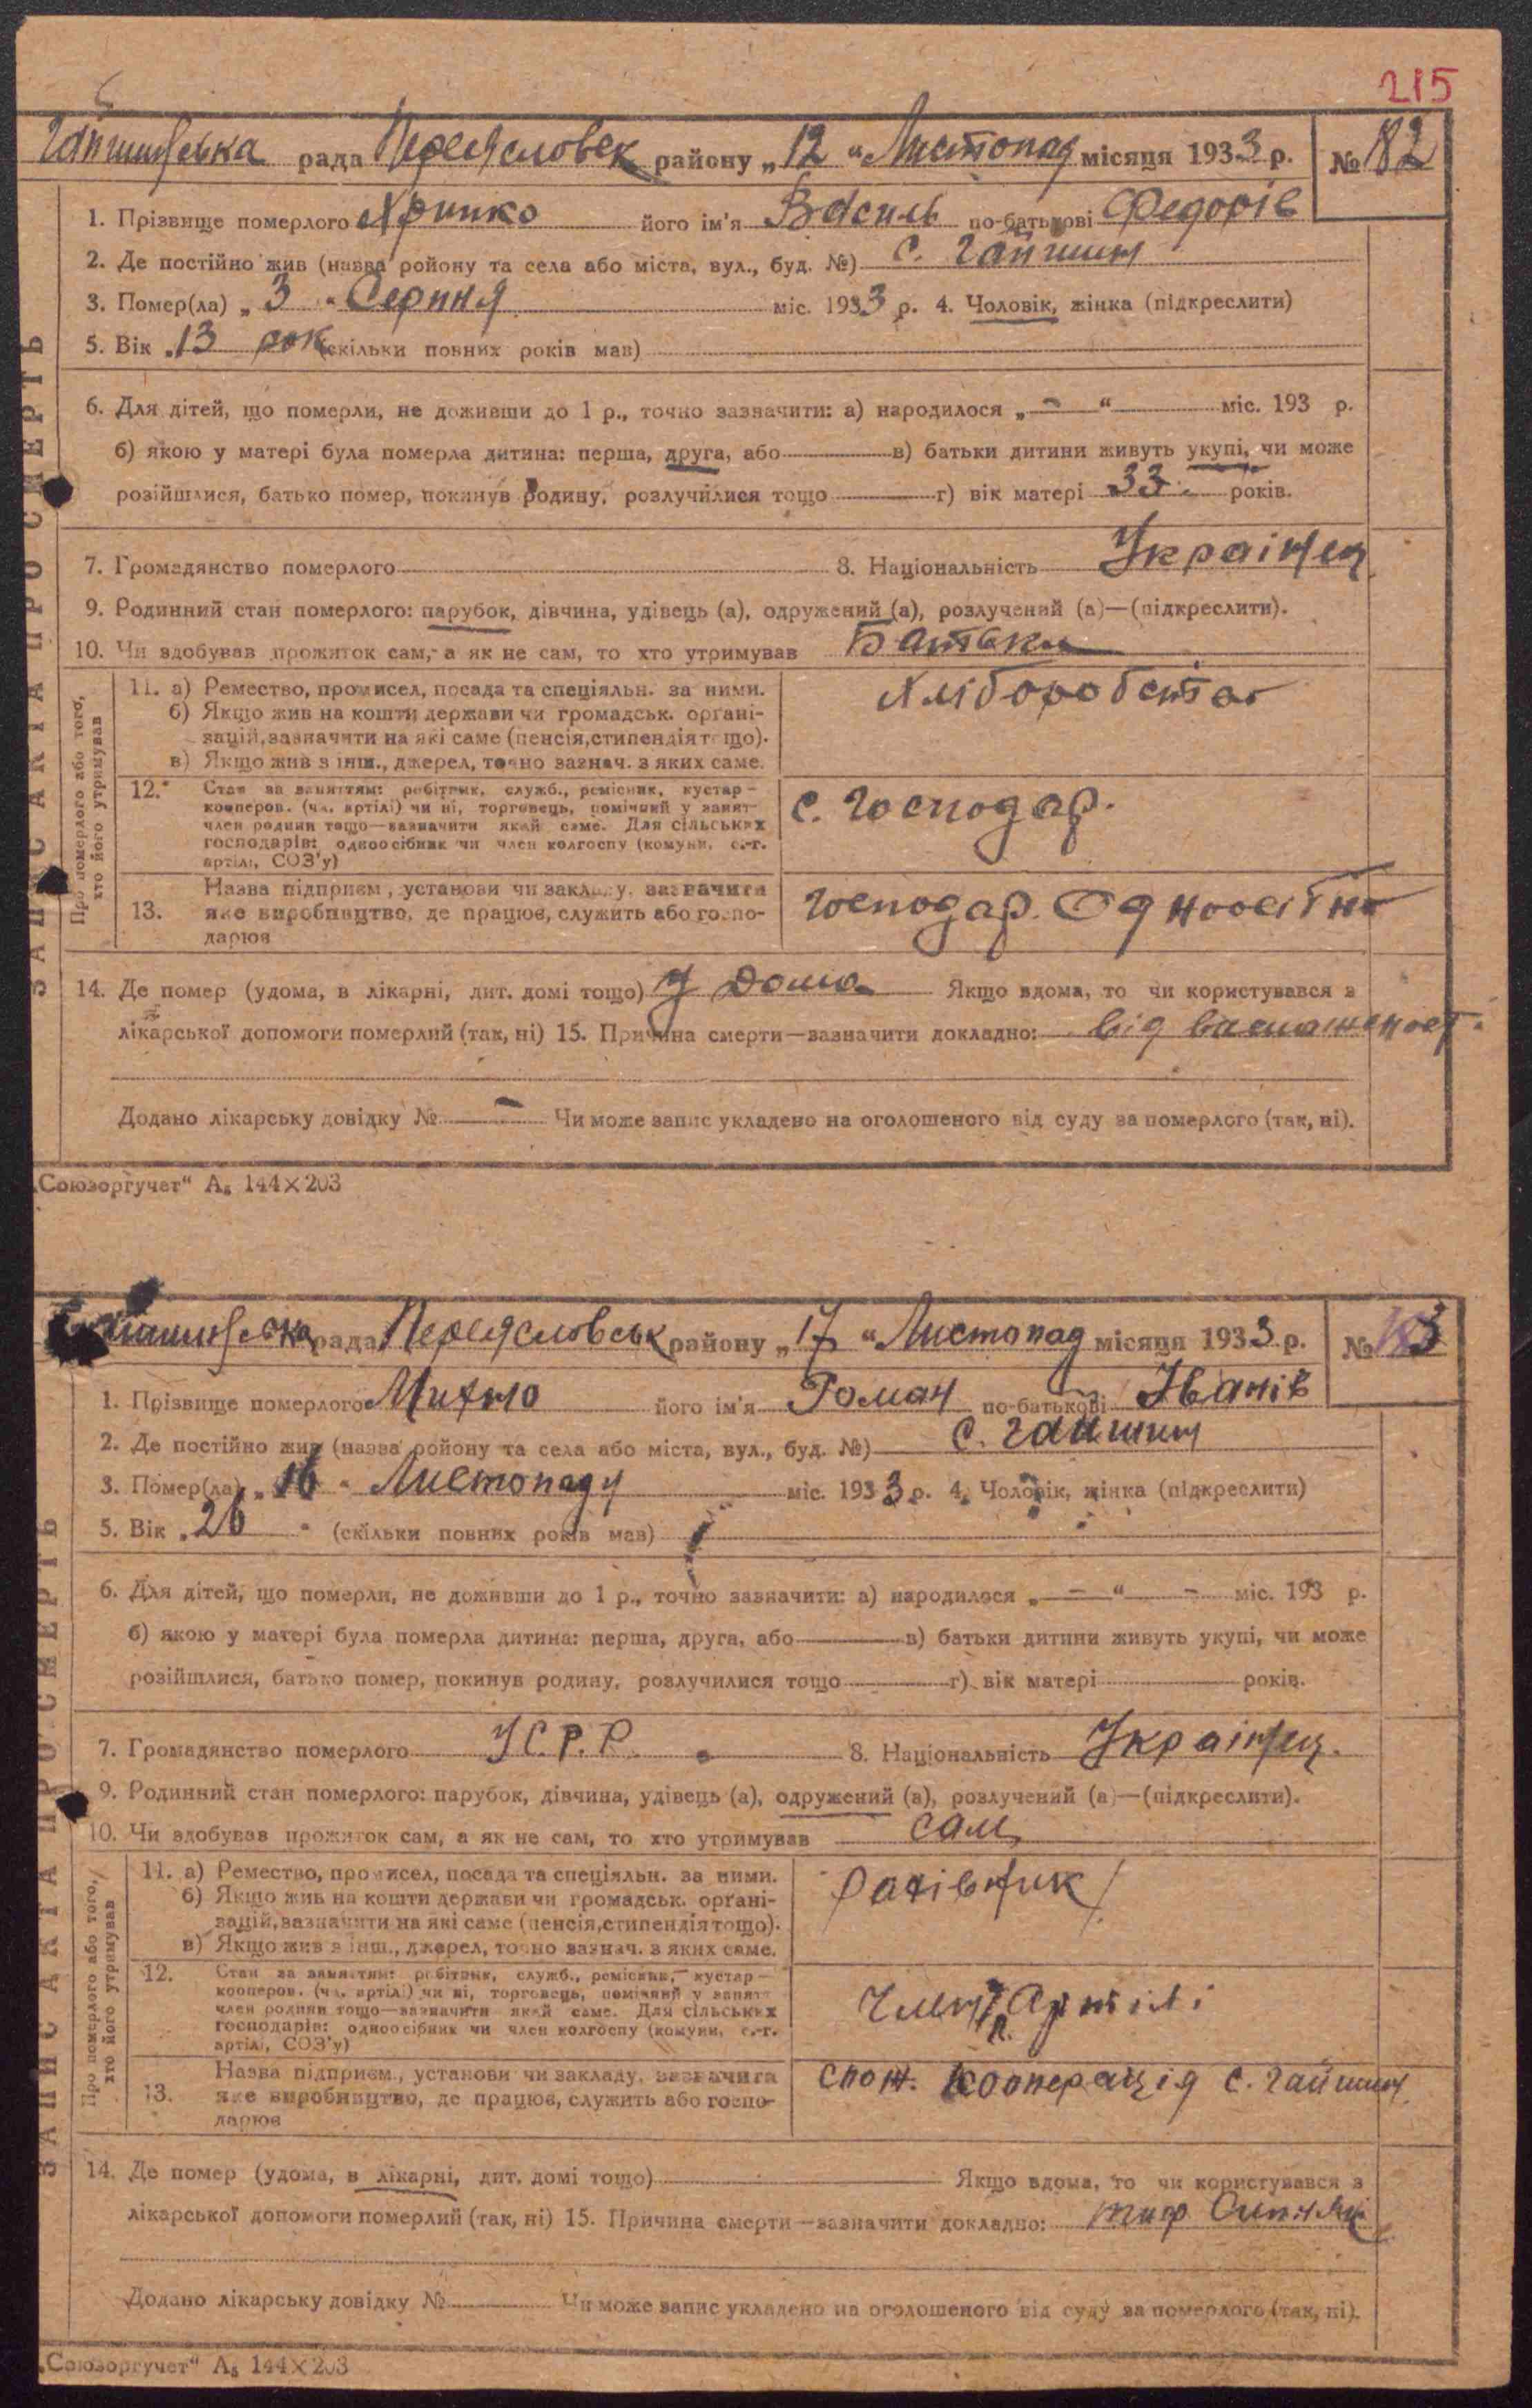 215
Гайшинська рада Переясловск району „12“ Листопад місяця 1933 р. № 182
1. Прізвище померлого Хрипко його ім'я Василь по-батькові Федорів
2. Де постійно жив (назва ройону та села або міста, вул., буд. №) с. Гайшин
3. Помер(ла) „3“ Серпня міс. 1933 р. 4. Чоловік, жінка (підкреслити)
5. Вік „13 рок (скільки повних років мав)
6. Для дітей, що померли, не доживши до 1 р., точно зазначити: а) народилося „—“ міс. 193 р.
б) якою у матері була померла дитина: перша, друга, або в) батьки дитини живуть укупі, чи може
розійшлися, батько помер, покинув родину, розлучилися тощо г) вік матері 33 років.
7. Громадянство померлого 8. Національність Українец
9. Родинний стан померлого: парубок, дівчина, удівець (а), одружений (а), розлучений (а)—(підкреслити).
10. Чи здобував прожиток сам, а як не сам, то хто утримував Батьки
ЗАПИС АКТА ПРО СМЕРТЬ
Про померлого або того, хто його утримував
11. а) Ремество, промисел, посада та спеціяльн. за ними.
б) Якщо жив на кошти держави чи громадськ. органі-
зацій, зазначити на які саме (пенсія, стипендія тощо).
в) Якщо жив з інш., джерел, точно зазнач. з яких саме.
Хліборобство
12. Стан за заняттям: робітник, служб., ремісник, кустар—
кооперов. (чл. артілі) чи ні, торговець, помічний у занят—
член родини тощо—зазначити який саме. Для сільських
господарів: одноосібник чи член колгоспу (комуни, с.-г.
артілі, СОЗ'у)
с. господар.
13. Назва підприєм., установи чи закладу, зазначити
яке виробництво, де працює, служить або госпо-
дарює
господар. Одноосібно
14. Де помер (удома, в лікарні, дит. домі тощо) у дома Якщо вдома, то чи користувався з
лікарської допомоги померлий (так, ні) 15. Причина смерти—зазначити докладно: від виснаженост.
Додано лікарську довідку № — Чи може запис укладено на оголошеного від суду за померлого (так, ні).
„Союзоргучет“ А₅ 144×203
рада Переясловськ району „17“ Листопад місяця 1933 р. № 183
1. Прізвище померлого його ім'я Роман по-батькові Іванів
2. Де постійно жив (назва ройону та села або міста, вул., буд. №) с. Гайшин
3. Помер(ла) „16“ Листопаду міс. 1933 р. 4. Чоловік, жінка (підкреслити)
5. Вік „26“ (скільки повних років мав)
6. Для дітей, що померли, не доживши до 1 р., точно зазначити: а) народилося „—“ — міс. 193 р.
б) якою у матері була померла дитина: перша, друга, або в) батьки дитини живуть укупі, чи може
розійшлися, батько помер, покинув родину, розлучилися тощо г) вік матері років.
7. Громадянство померлого У.С.Р.Р. 8. Національність Українец.
9. Родинний стан померлого: парубок, дівчина, удівець (а), одружений (а), розлучений (а)—(підкреслити).
10. Чи здобував прожиток сам, а як не сам, то хто утримував сам
ЗАПИС АКТА ПРО СМЕРТЬ
Про померлого або того, хто його утримував
11. а) Ремество, промисел, посада та спеціяльн. за ними.
б) Якщо жив на кошти держави чи громадськ. органі-
зацій, зазначити на які саме (пенсія, стипендія тощо).
в) Якщо жив з інш., джерел, точно зазнач. з яких саме.
рахівник
12. Стан за заняттям: робітник, служб., ремісник, кустар—
кооперов. (чл. артілі) чи ні, торговець, помічний у занят—
член родини тощо—зазначити який саме. Для сільських
господарів: одноосібник чи член колгоспу (комуни, с.-г.
артілі, СОЗ'у)
член Артілі
13. Назва підприєм., установи чи закладу, зазначити
яке виробництво, де працює, служить або госпо-
дарює
спож. кооперація с. Гайшин
14. Де помер (удома, в лікарні, дит. домі тощо) Якщо вдома, то чи користувався з
лікарської допомоги померлий (так, ні) 15. Причина смерти—зазначити докладно: тиф
Додано лікарську довідку № Чи може запис укладено на оголошеного від суду за померлого (так, ні).
„Союзоргучет“ А₅ 144×203